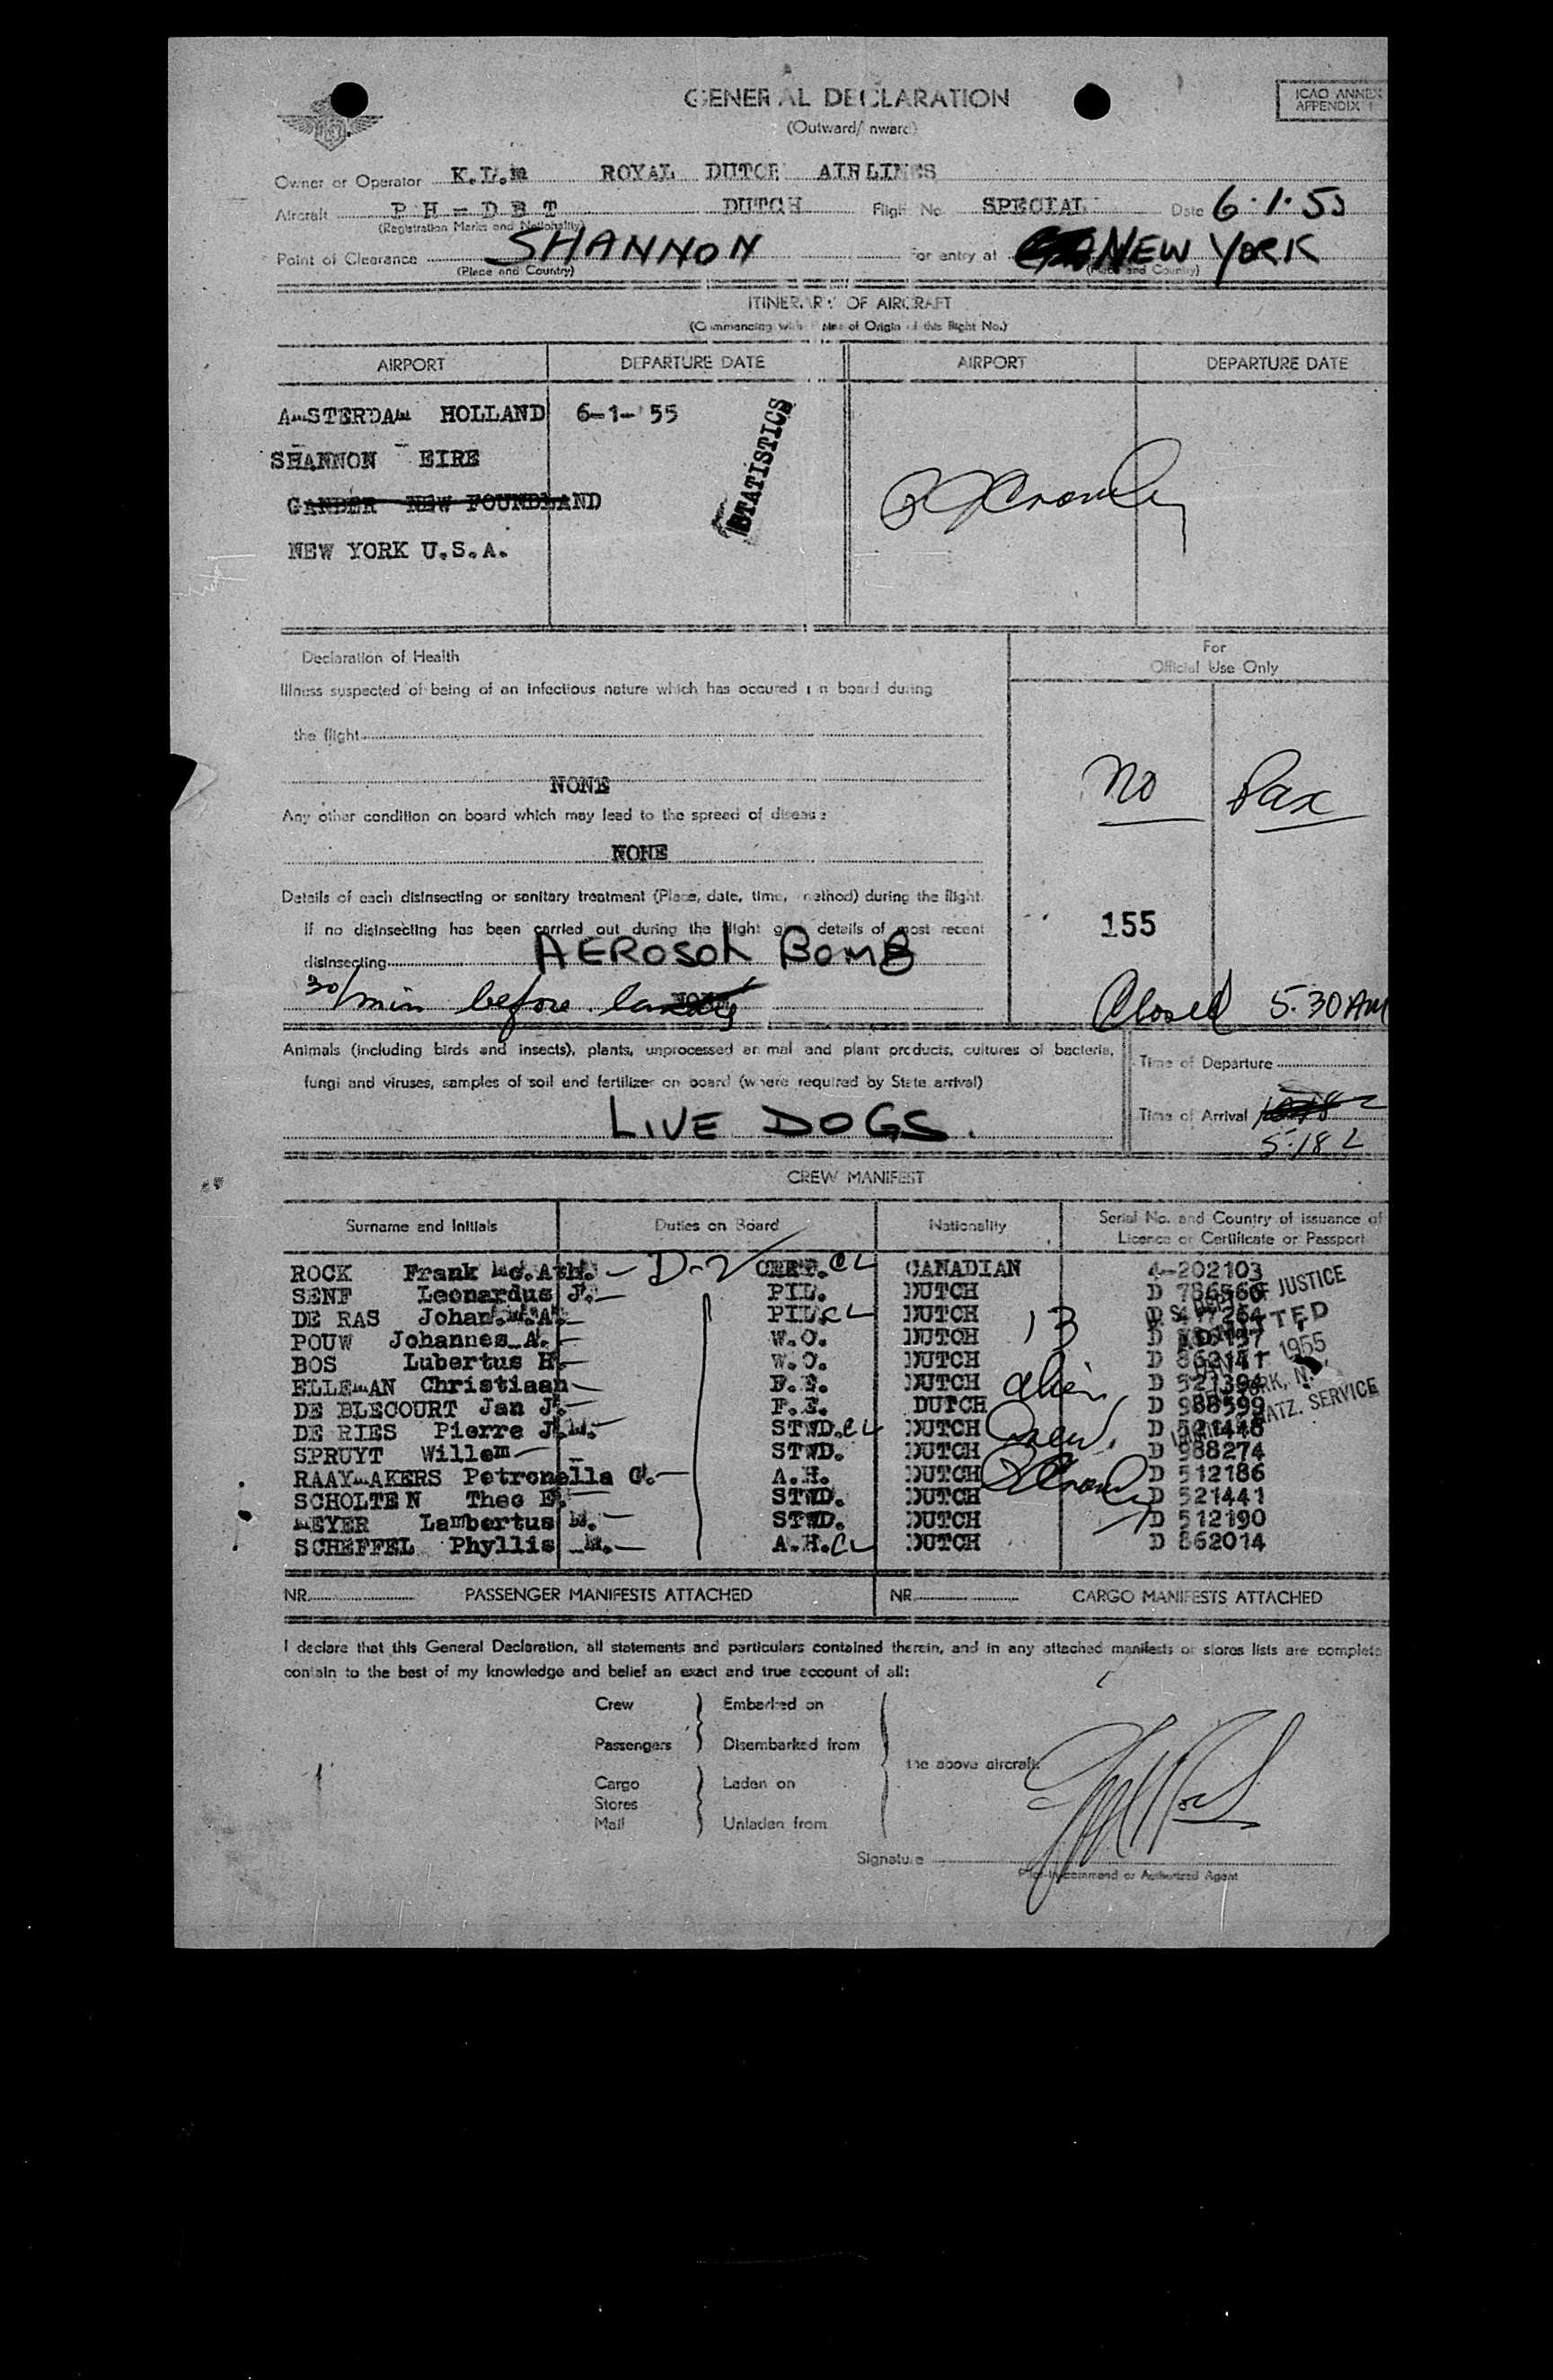 GENERAL DECLARATION
(Outward/Inward)
ICAO ANNEX
APPENDIX 1
Owner or Operator K.L.M ROYAL DUTCH AIRLINES
Aircraft PH-DBT DUTCH Flight No. SPECIAL Date 6.1.55
(Registration Marks and Nationality)
Point of Clearance SHANNON For entry at NEW YORK
(Place and Country) (Place and Country)
ITINERARY OF AIRCRAFT
(Commencing with Place of Origin of this flight No.)
AIRPORT DEPARTURE DATE AIRPORT DEPARTURE DATE
AMSTERDAM HOLLAND 6-1-'55
STATISTICS
SHANNON EIRE
GANDER NEW FOUNDLAND
NEW YORK U.S.A.
Declaration of Health
For
Official Use Only
Illness suspected of being of an infectious nature which has occured on board during
the flight
NONE
No Pax
Any other condition on board which may lead to the spread of disease
NONE
Details of each disinsecting or sanitary treatment (Place, date, time, method) during the flight.
If no disinsecting has been carried out during the flight give details of most recent
155
disinsecting AEROSOL BOMB
30/min before landing
Closed 5.30 AM
Animals (including birds and insects), plants, unprocessed animal and plant products, cultures of bacteria,
fungi and viruses, samples of soil and fertilizer on board (where required by State arrival)
LIVE DOGS.
Time of Departure
Time of Arrival
5:18 L
CREW MANIFEST
Surname and Initials Duties on Board Nationality Serial No. and Country of issuance of
Licence or Certificate or Passport
ROCK Frank Mc.Ath. D-2 CL CANADIAN 4-202103
SENF Leonardus J. PIL. DUTCH D
DE RAS Johan M.A. PIL. CL DUTCH D
POUW Johannes A. W.O. DUTCH 13 D
BOS Lubertus H. W.O. DUTCH D 862141
ELLEMAN Christiaan F.E. DUTCH Alien D 521394
DE BLECOURT Jan J. F.E. DUTCH D 988599
DE RIES Pierre J.M. STWD. CL DUTCH Crew. D 521448
SPRUYT Willem STWD. DUTCH D 988274
RAAYMAKERS Petronella C. A.H. DUTCH D 512186
SCHOLTEN Theo E. STWD. DUTCH D 521441
MEYER Lambertus M. STWD. DUTCH D 512190
SCHEFFEL Phyllis M. A.H. CL DUTCH D 862014
JUSTICE
ADMITTED
1955
NATZ. SERVICE
NR. PASSENGER MANIFESTS ATTACHED NR. CARGO MANIFESTS ATTACHED
I declare that this General Declaration, all statements and particulars contained therein, and in any attached manifests or stores lists are complete
contain to the best of my knowledge and belief an exact and true account of all:
Crew Embarked on
Passengers Disembarked from
the above aircraft.
Cargo Laden on
Stores
Mail Unladen from
Signature
Pilot-in-command or Authorized Agent